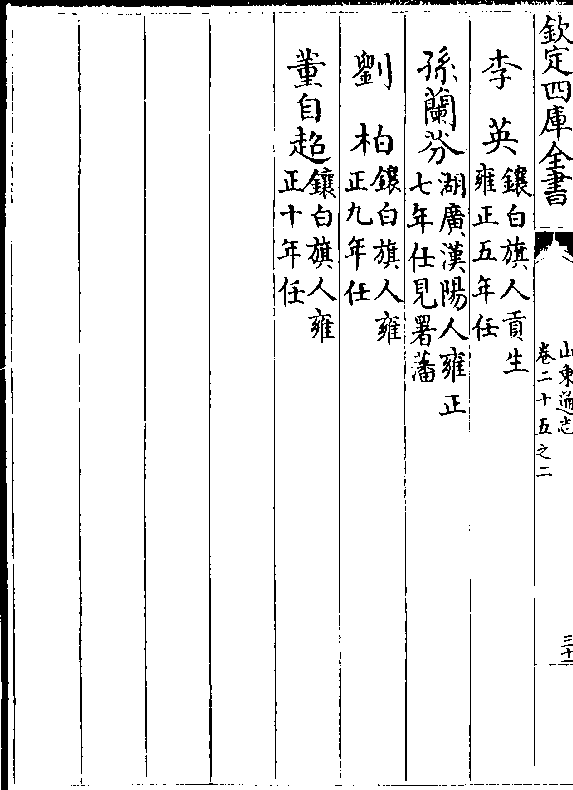 欽定四庫全書
山東通志
卷二十五之二
三十
李英
鑲白旗人貢生
雍正五年任
孫蘭芬
湖廣漢陽人雍正
七年任見署藩
劉柏
鑲白旗人雍
正九年任
董自超
鑲白旗人雍
正十年任